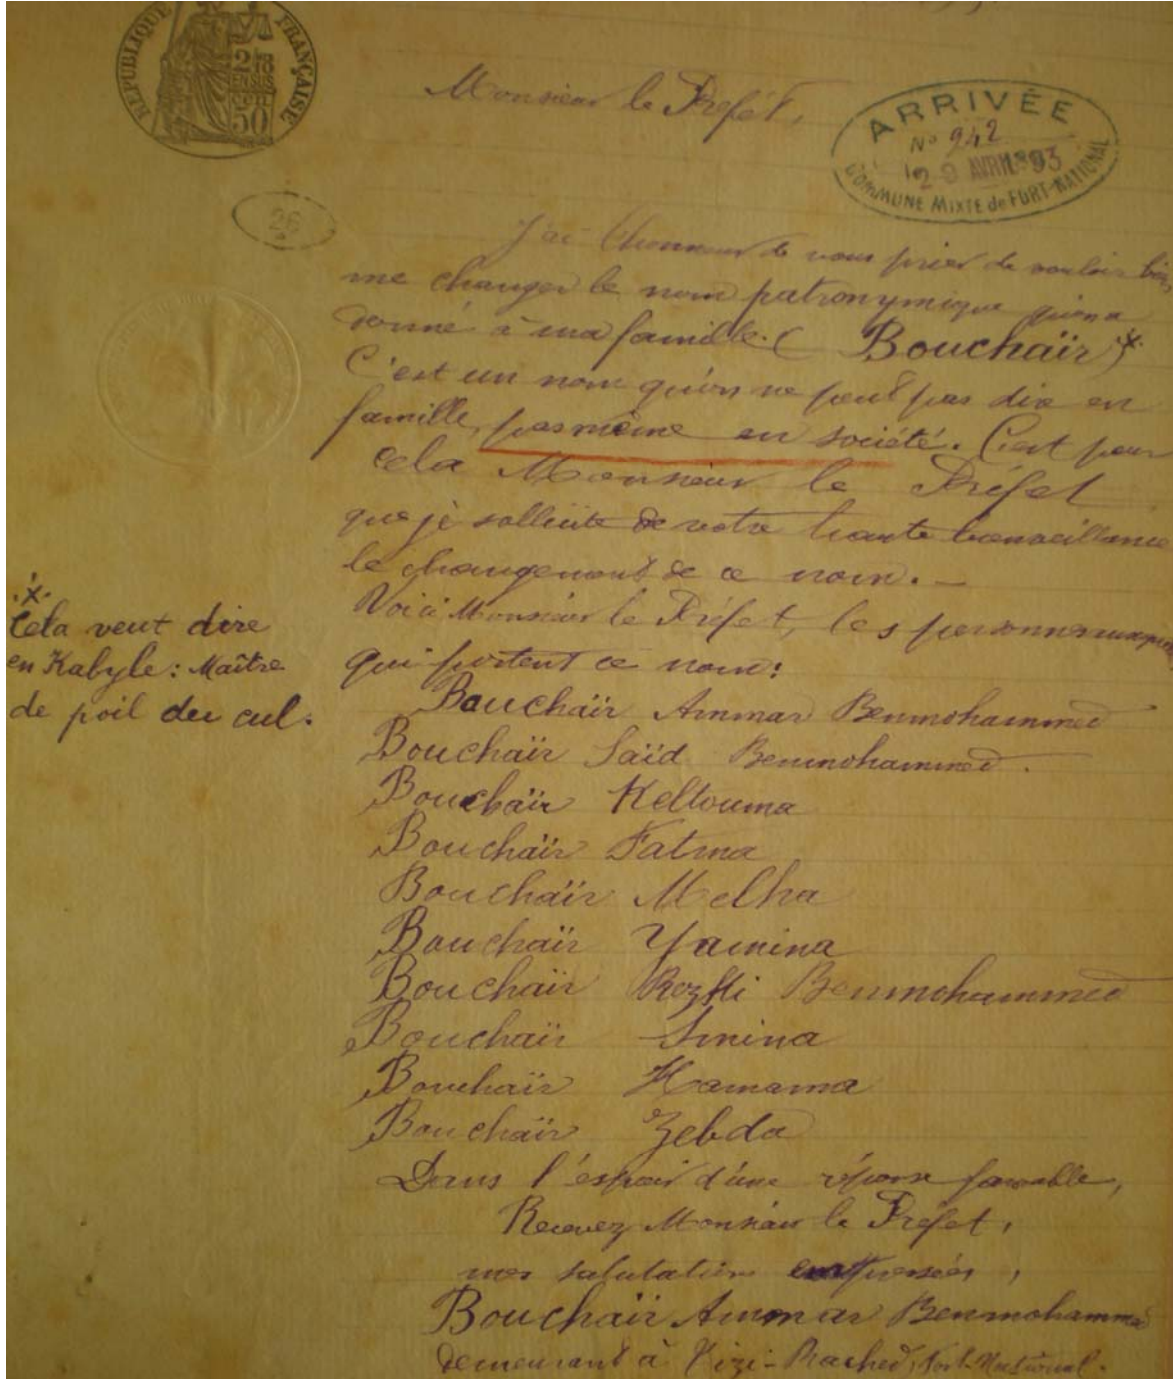 RÉPUBLIQUE FRANÇAISE
2/10
EN SUS
50
Monsieur le Préfet,
ARRIVÉE
No 942
29 AVRIL 1893
COMMUNE MIXTE de FORT-NATIONAL
26
J'ai l'honneur de vous prier de vouloir bien
me changer le nom patronymique qu'on a
donné à ma famille. (Bouchaïr) .x.
C'est un nom qu'on ne peut pas dire en
famille, pas même en société. C'est pour
cela Monsieur le Préfet
que je sollicite de votre haute bienveillance
le changement de ce nom. –
Voici Monsieur le Préfet, les personnes
qui portent ce nom:
.x.
Cela veut dire
en Kabyle: Maître
de poil du cul.
Bouchaïr Ammar Benmohammed
Bouchaïr Saïd Benmohammed.
Bouchaïr Keltouma
Bouchaïr Fatma
Bouchaïr Melha
Bouchaïr Yamina
Bouchaïr Rezki Benmohammed
Bouchaïr Smina
Bouchaïr Hamama
Bouchaïr Zebda
Dans l'espoir d'une réponse favorable,
Recevez Monsieur le Préfet,
mes salutations empressées,
Bouchaïr Ammar Benmohammed
demeurant à Tizi-Rached, Fort-National.